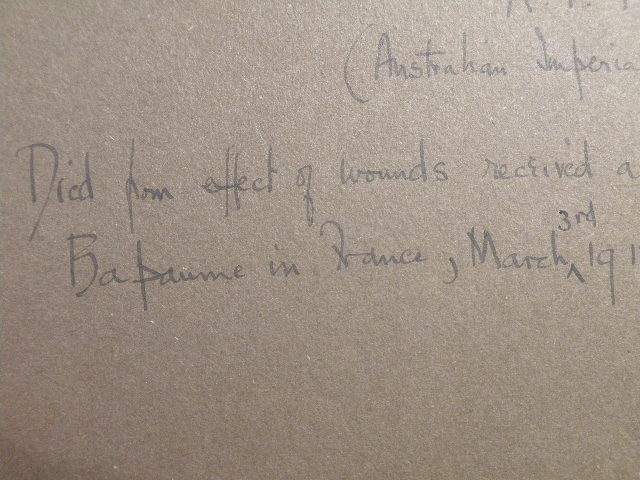 (Australian Imperia
Died from effect of wounds received a
Bapaume in France, March 3rd 191